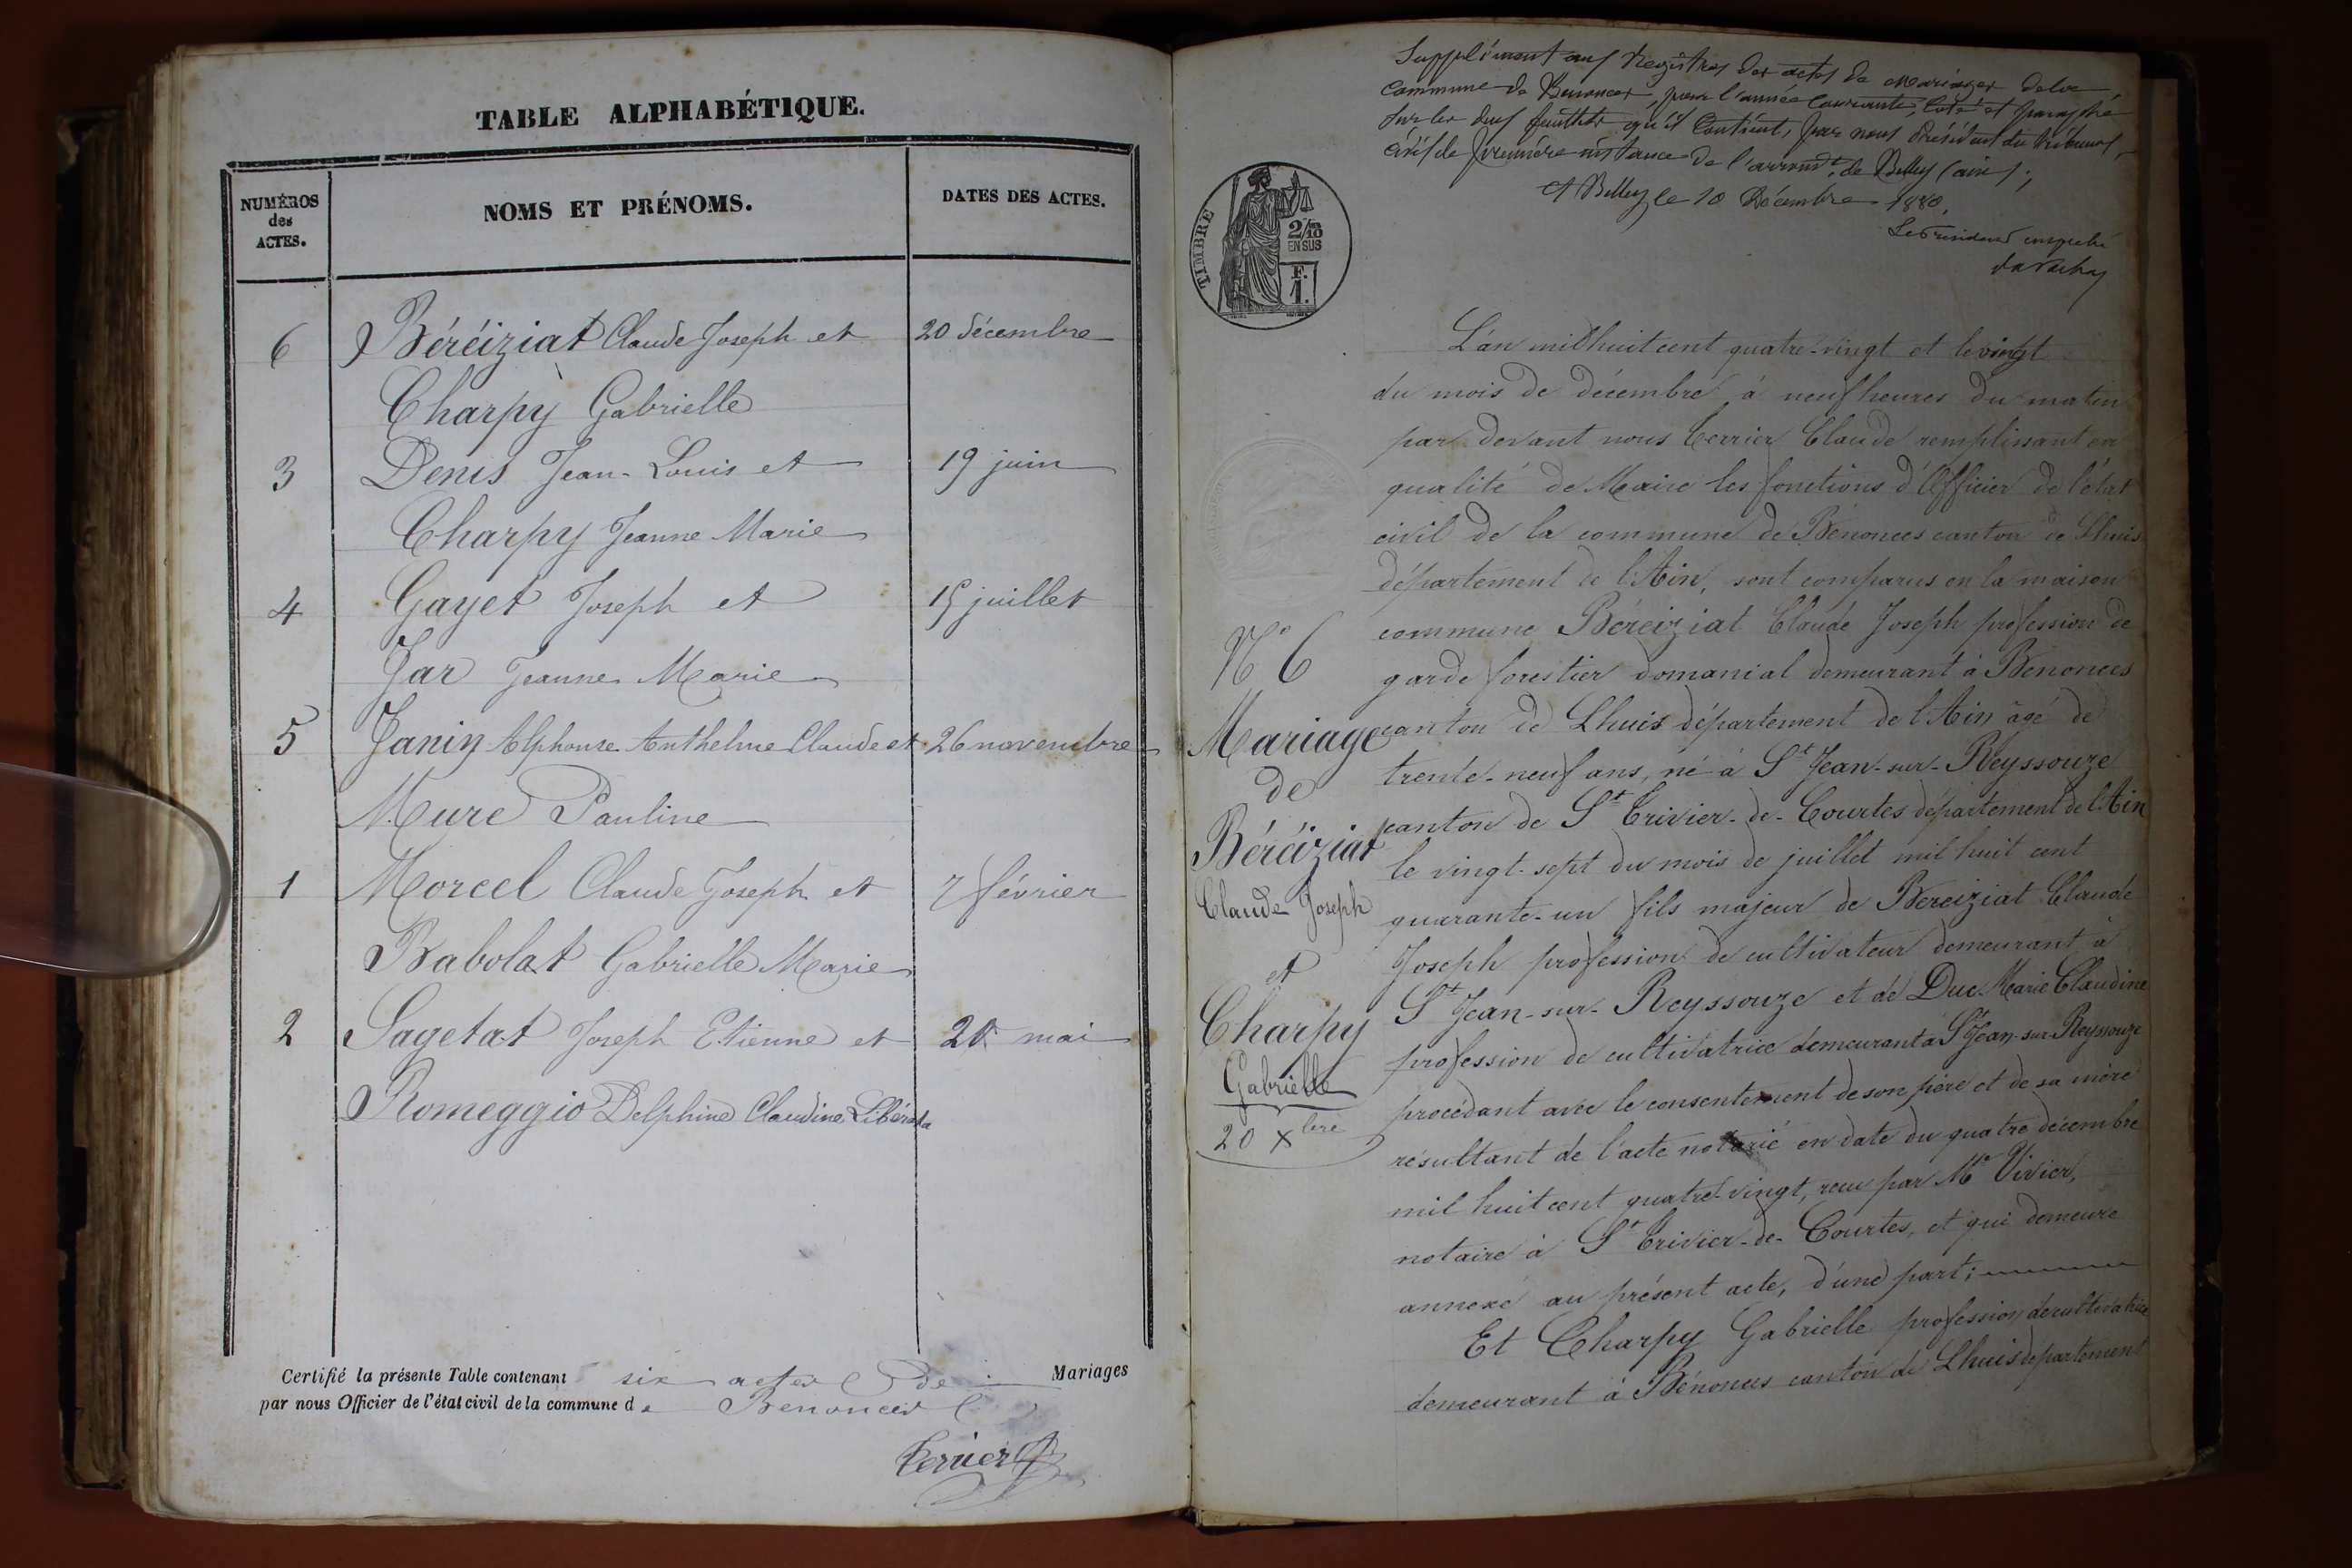 TABLE ALPHABÉTIQUE.
NUMÉROS des ACTES.
NOMS ET PRÉNOMS.
DATES DES ACTES.
6 Béréiziat Claude Joseph et 20 décembre
Charpy Gabrielle
3 Denis Jean-Louis et 19 juin
Charpy Jeanne Marie
4 Gayet Joseph et 15 juillet
Jar Jeanne Marie
5 Janin Alphonse Anthelme Claude et 26 novembre
Mure Pauline
1 Morcel Claude Joseph et 7 février
Babolat Gabrielle Marie
2 Sagetat Joseph Etienne et mai
Romeggio Delphine Claudine Libérata
Certifié la présente Table contenant six actes de Mariages
par nous Officier de l'état civil de la commune de Benonces
Supplément aux Registres des actes de Mariages de la
commune de Benonces, pour l'année courante, coté et paraphé
sur les deux feuillets qu'il contient, par nous Président du tribunal
civil de première instance de l'arrondt. de Belley (ain);
A Belley, le 10 Décembre 1880.
Le Président
TIMBRE
2/10 EN SUS
F. 1.
L'an mil huit cent quatre-vingt et le vingt
du mois de décembre à neuf heures du matin
par devant nous Terrier Claude remplissant en
qualité de Maire les fonctions d'Officier de l'état
civil de la commune de Bénonces canton de Lhuis
département de l'Ain, sont comparus en la maison
commune Béréiziat Claude Joseph profession de
garde forestier domanial demeurant à Benonces
canton de Lhuis département de l'Ain âgé de
trente-neuf ans, né à St Jean-sur-Reyssouze
canton de St Trivier-de-Courtes département de l'Ain
le vingt-sept du mois de juillet mil huit cent
quarante-un fils majeur de Bereiziat Claude
Joseph profession de cultivateur demeurant à
St Jean-sur-Reyssouze et de Duc Marie Claudine
profession de cultivatrice demeurant à St Jean-sur-Reyssouze
procédant avec le consentement de son père et de sa mère
résultant de l'acte notarié en date du quatre décembre
mil huit cent quatre-vingt, reçu par Me Vivier,
notaire à St Trivier-de-Courtes, et qui demeure
annexé au présent acte, d'une part;
Et Charpy Gabrielle profession de cultivatrice
demeurant à Bénonces canton de Lhuis département
N° 6
Mariage
de
Béréiziat
Claude Joseph
et
Charpy
Gabrielle
20 Xbre
Terrier